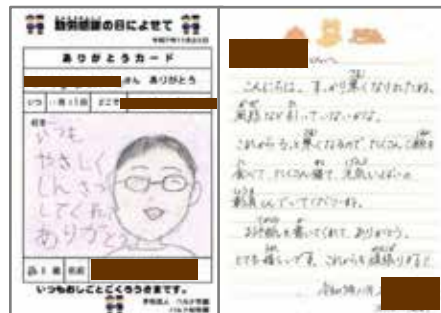 勤労感謝の日によせて
ありがとうカード
さん ありがとう
いつ
どこで
いつも
やさしく
しんさつ
してくれて
ありがとう
名前
いつもおしごとごくろうさまです。
こんにちは。すっかり寒くなりましたね。
風邪など引いていないかな。
これからもっと寒くなるので、たくさんご飯を
食べて、たくさん寝て、元気いっぱいの
お手紙を書いてくれて、ありがとう。
とても嬉しいです。これからも頑張りますね